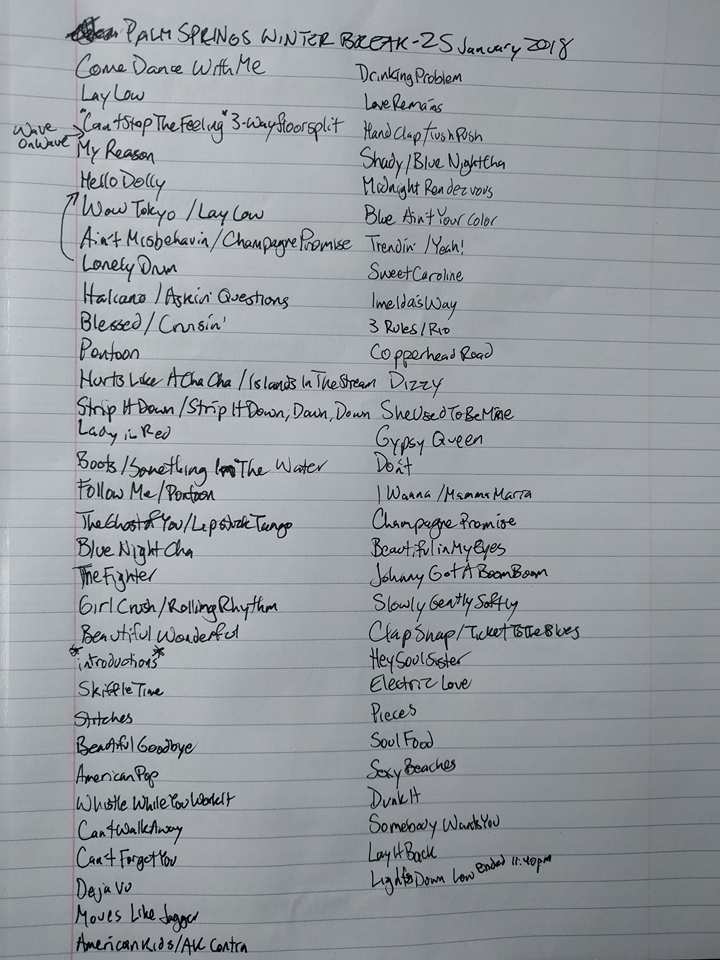 PALM SPRINGS WINTER BREAK - 25 January 2018
Come Dance With Me
Lay Low
Wave On Wave
"Can't Stop The Feeling" 3-Way floorsplit
My Reason
Hello Dolly
Wow Tokyo / Lay Low
Ain't Misbehavin / Champagne Promise
Lonely Drum
Halcano / Askin' Questions
Blessed / Cruisin'
Pontoon
Hurts Like A Cha Cha / Islands In The Stream
Strip It Down / Strip It Down, Down, Down
Lady in Red
Boots / Something In The Water
Follow Me / Pontoon
The Ghost of You / Lipstick Tango
Blue Night Cha
The Fighter
Girl Crush / Rolling Rhythm
Beautiful Wonderful
*introductions*
Skiffle Time
Stitches
Beautiful Goodbye
American Pop
Whistle While You Work It
Can't Walk Away
Can't Forget You
Deja Vu
Moves Like Jagger
American Kids / AK Contra
Drinking Problem
Love Remains
Hand Clap / Tush Push
Shady / Blue Night Cha
Midnight Rendezvous
Blue Ain't Your Color
Trendin' / Yeah!
Sweet Caroline
Imelda's Way
3 Rules / Rio
Copperhead Road
Dizzy
She Used To Be Mine
Gypsy Queen
Don't
I Wanna / Mamma Maria
Champagne Promise
Beautiful in My Eyes
Johnny Got A Boom Boom
Slowly Gently Softly
Clap Snap / Ticket To The Blues
Hey Soul Sister
Electric Love
Pieces
Soul Food
Sexy Beaches
Dunk It
Somebody Wants You
Lay It Back
Lights Down Low Ended 11:40pm